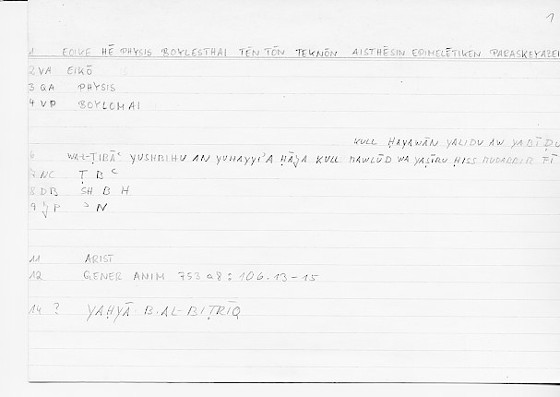 1
1 EOIKE HĒ PHYSIS BOYLESTHAI TĒN TŌN TEKNŌN AISTHĒSIN EPIMELĒTIKEN PARASKEYAZEI
2 VA EIKŌ
3 QA PHYSIS
4 VP BOYLOMAI
KULL ḤAYAWĀN YALIDU AW YABĪḌU
6 WA-L-ṬIBĀʿ YUSHBIHU AN YUHAYYIʾA KULL MAWLŪD WA ḤISS MUDABBIR FĪ
7 NC Ṭ B ʿ
8 DB SH B H
9 P ʾ N
11 ARIST
12 GENER ANIM 753 a8 : 106.13-15
14 ? YAḤYĀ B. AL-BIṬRĪQ